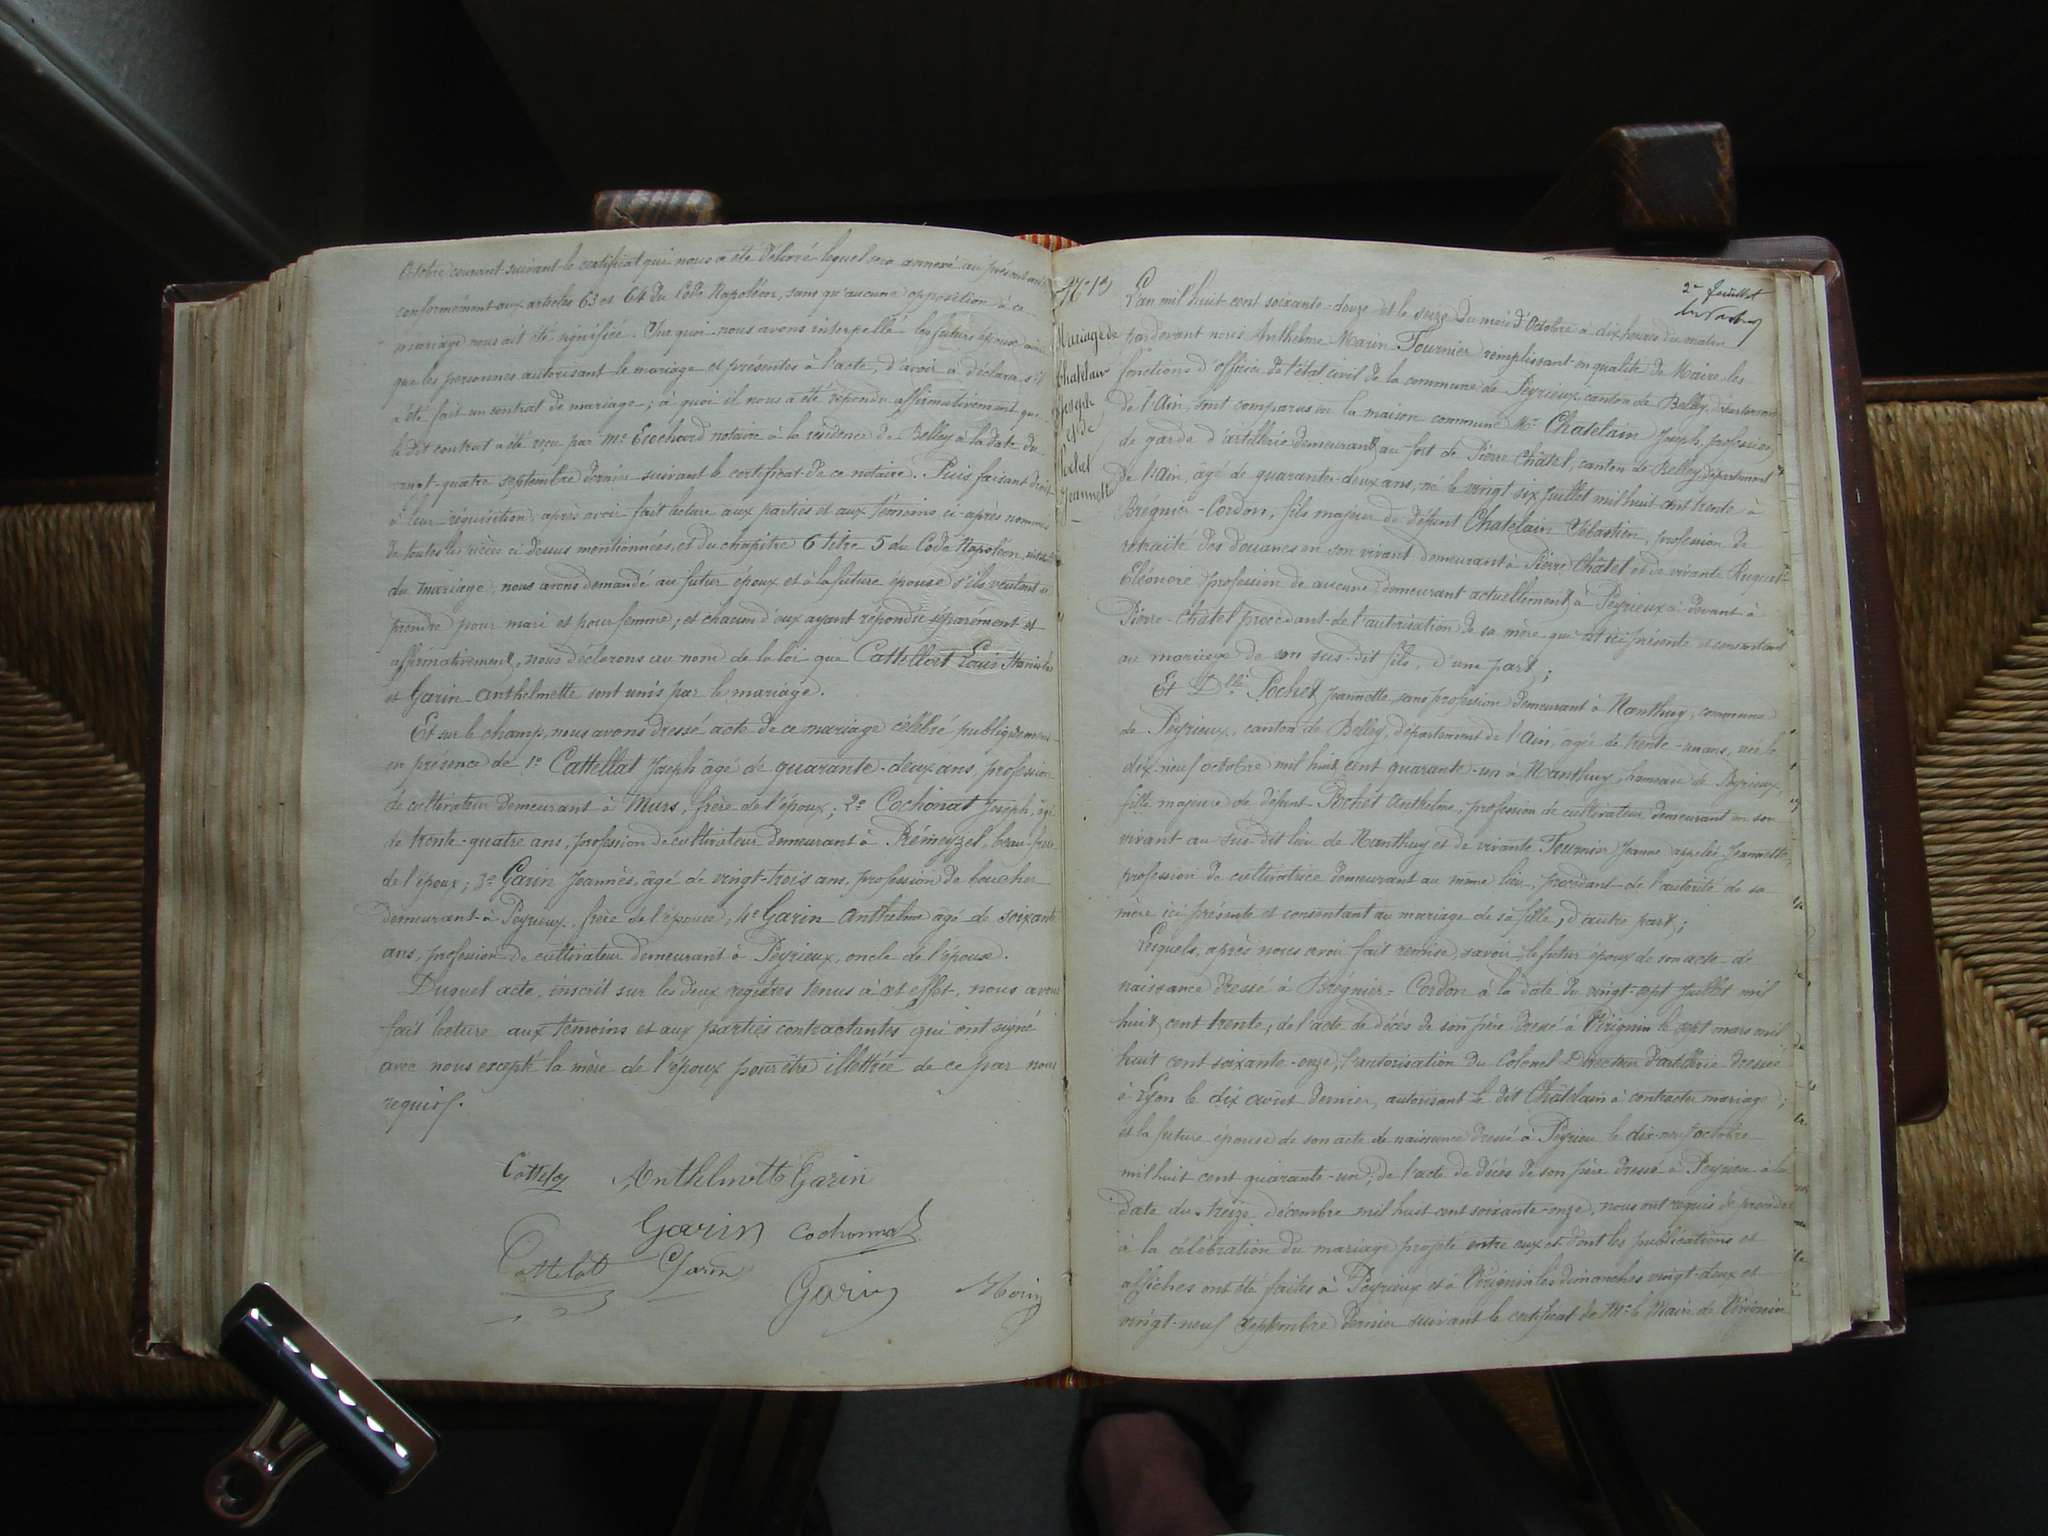 Octobre courant suivant le certificat qui nous a été délivré lequel sera annexé au présent acte
conformément aux articles 63 et 64 du Code Napoléon, sans qu'aucune opposition à ce
mariage nous ait été signifiée. Sur quoi nous avons interpellé les futurs époux ainsi
que les personnes autorisant le mariage et présentes à l'acte, d'avoir à déclarer s'il
a été fait un contrat de mariage ; à quoi il nous a été répondu affirmativement que
le dit contrat a été reçu par Me notaire à la résidence de Belley à la date du
vingt-quatre septembre dernier suivant le certificat de ce notaire. Puis faisant droit
à leur réquisition après avoir fait lecture aux parties et aux témoins ci-après nommés
de toutes les pièces ci dessus mentionnées, et du chapitre 6 titre 5 du Code Napoléon, intitulé
du mariage, nous avons demandé au futur époux et à la future épouse s'ils veulent se
prendre pour mari et pour femme ; et chacun d'eux ayant répondu séparément et
affirmativement, nous déclarons au nom de la loi que Cattellat Louis Stanislas
et Garin Anthelmette sont unis par le mariage.
Et sur le champ, nous avons dressé acte de ce mariage célébré publiquement
en présence de 1° Cattellat Joseph âgé de quarante-deux ans, profession
de cultivateur demeurant à Murs, frère de l'époux ; 2° Cochonat Joseph, âgé
de trente-quatre ans, profession de cultivateur demeurant à Prémeyzel, beau-frère
de l'époux ; 3° Garin Joannès, âgé de vingt-trois ans, profession de boucher
demeurant à Peyrieux, frère de l'épouse ; 4° Garin Anthelme âgé de soixante
ans, profession de cultivateur demeurant à Peyrieux, oncle de l'épouse.
Duquel acte, inscrit sur les deux registres tenus à cet effet, nous avons
fait lecture aux témoins et aux parties contractantes qui ont signé
avec nous excepté la mère de l'époux pour être illettrée de ce par nous
requis.
Anthelmette Garin
Garin Cochonnat
Cattelat Garin
Garin Morin
2e feuillet
N° 13
Mariage de
Chatelain
Joseph
et de
Pochet
Jeannette
L'an mil huit cent soixante-douze et le seize du mois d'Octobre à dix heures du matin
pardevant nous Anthelme Marin Tournier remplissant en qualité de Maire les
fonctions d'officier de l'état civil de la commune de Peyrieux canton de Belley, département
de l'Ain, sont comparus en la maison commune Mr Chatelain Joseph, profession
de garde d'artillerie demeurant au fort de Pierre Châtel, canton de Belley département
de l'Ain, âgé de quarante-deux ans, né le vingt six Juillet mil huit cent trente à
Brégnier-Cordon, fils majeur de défunt Chatelain Sébastien, profession de
retraité des douanes en son vivant demeurant à Pierre Châtel et de vivante
Eléonore profession de aucune demeurant actuellement à Peyrieux ci-devant à
Pierre-Châtel procédant de l'autorisation de sa mère qui est ici présente et consentant
au mariage de son sus-dit fils, d'une part ;
Et Dlle Pochet Jeannette, sans profession demeurant à Nanthuy, commune
de Peyrieux, canton de Belley, département de l'Ain, âgée de trente-un ans, née le
dix-neuf octobre mil huit cent quarante-un à Nanthuy, hameau de Peyrieux,
fille majeure de défunt Pochet Anthelme, profession de cultivateur demeurant en son
vivant au sus-dit lieu de Nanthuy et de vivante Tournier Jeanne appelée Jeannette,
profession de cultivatrice demeurant au même lieu, procédant de l'autorité de sa
mère ici présente et consentant au mariage de sa fille, d'autre part ;
Lesquels, après nous avoir fait remise, savoir, le futur époux de son acte de
naissance dressé à Brégnier-Cordon à la date du vingt-sept Juillet mil
huit cent trente ; de l'acte de décès de son père dressé à Virignin le sept mars mil
huit cent soixante-onze, l'autorisation du Colonel Directeur d'artillerie dressée
à Lyon le dix août dernier, autorisant le dit Châtelain à contracter mariage ;
et la future épouse de son acte de naissance dressé à Peyrieu le dix-neuf octobre
mil huit cent quarante-un, de l'acte de décès de son père dressé à Peyrieu à la
date du treize décembre mil huit cent soixante-onze, nous ont requis de procéder
à la célébration du mariage projeté entre eux et dont les publications et
affiches ont été faites à Peyrieux et à Virignin les dimanches vingt-deux et
vingt-neuf Septembre dernier suivant le certificat de Mr le Maire de Virignin